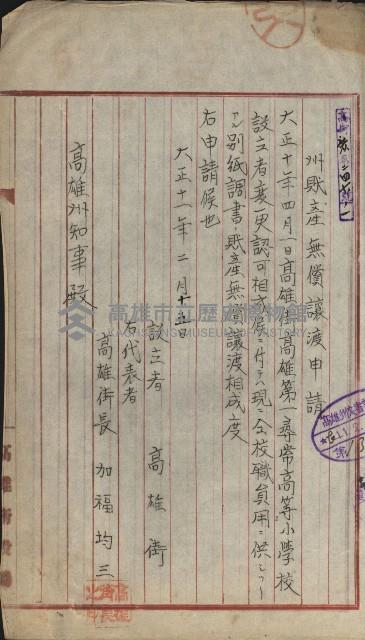 州財產無償讓渡申請
大正十年四月一日高雄州高雄第一尋常高等小學校
設立者變更認可相成候ニ付テハ現ニ仝校職員用ニ供シツヽ
アル別紙調書ノ財產無償讓渡相成度
右申請候也
大正十一年二月十五日
設立者 高雄街
右代表者
高雄街長 加福均三
高雄州知事殿
高雄市立歷史博物館
KAOHSIUNG MUSEUM OF HISTORY